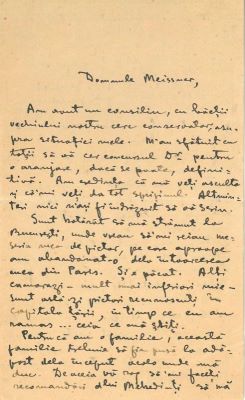 Domnule Meissner,
Am avut un consiliu, cu băeții
vechiului nostru cerc conservator, asu-
pra situației mele. M'au sfătuit cu
toții să vă cer concursul Dv pentru
o aranjare, dacă se poate, defini-
tivă. Am credința că mă veți asculta
și că-mi veți da tot sprijinul. Altmin-
teri nici n'ași fi îndrăznit să vă scriu.
Sunt hotărât să mă strămut la
București, unde vreau să-mi reiau me-
seria mea de pictor, pe care aproape
am abandonat-o dela întoarcerea
mea din Paris. Și e păcat. Alți
camarazi mult mai inferiori mie
sunt astăzi pictori recunoscuți în
capitala țării, în timp ce eu am
rămas... ceia ce mă știți.
Pentru că am o familie, această
familie trebuie să fie pusă la adă-
post dela început acolo unde mă
duc. De aceia vă rog să-mi faceți
recomandări lui să mă